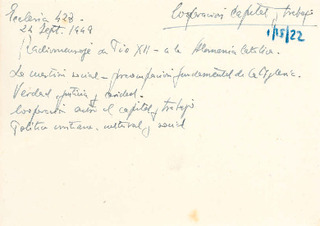 Ecclesia 428 -
Cooperación capital y trabajo
24 Sept. 1949
1/15/22
Radiomensaje de Pío XII - a la Alemania Católica.
La cuestión social - preocupación fundamental de la Iglesia.
Verdad, justicia y caridad.
Cooperación entre el capital y trabajo
Política cristiana, cultural y social